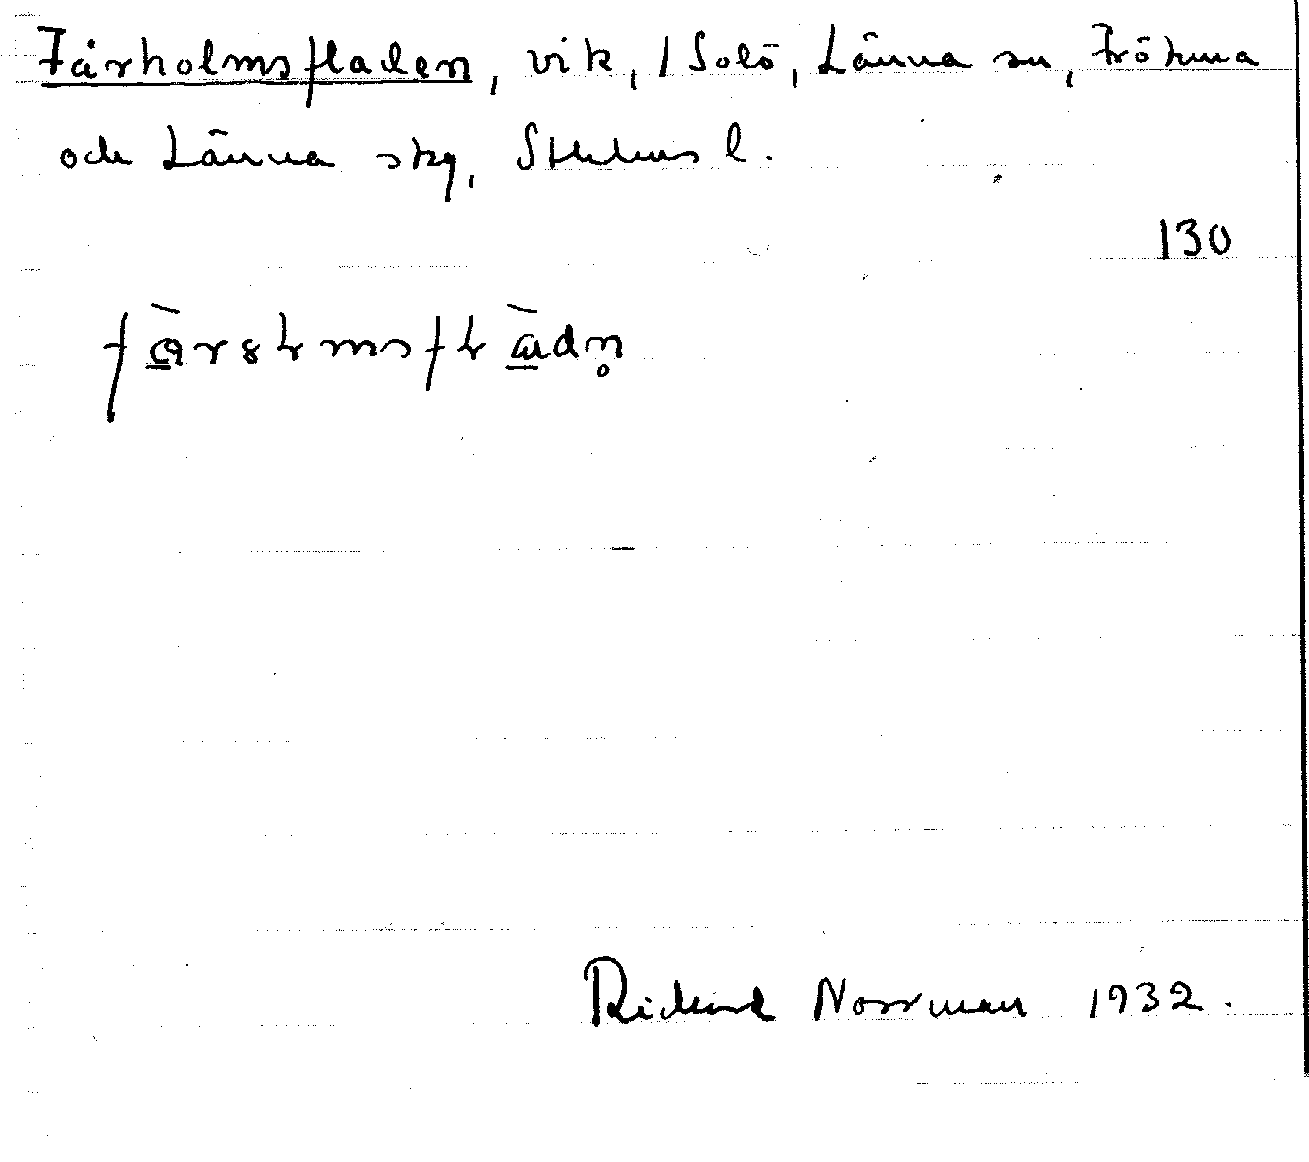 Fårholmsfladen, vik, / Solö, Länna sn, Frötuna
och Länna skg, Sthlms l.
130
Richard Norrman 1932.